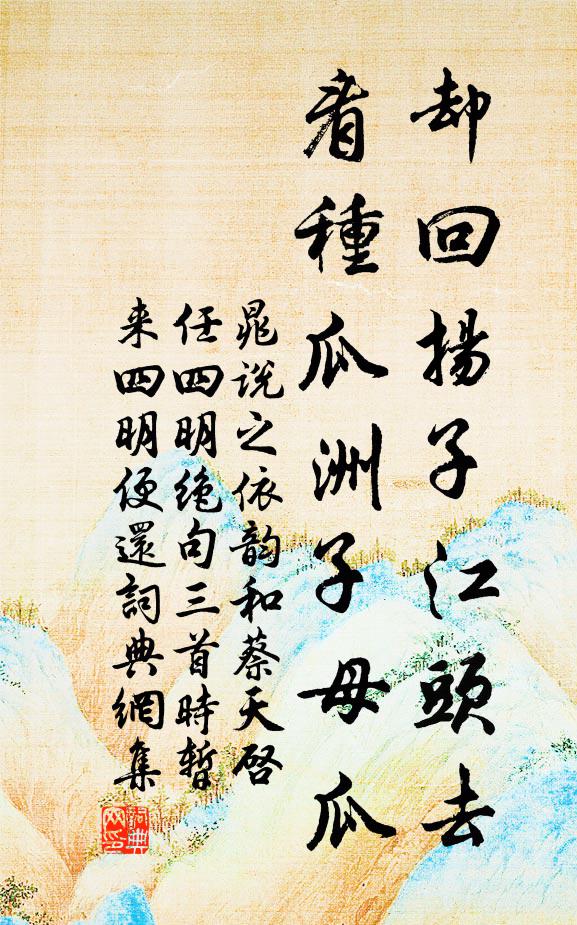 却回揚子江頭去
看種瓜洲子母瓜
晁说之依韵和蔡天啓
任四明绝句三首時暫
来四明便還詞典網集